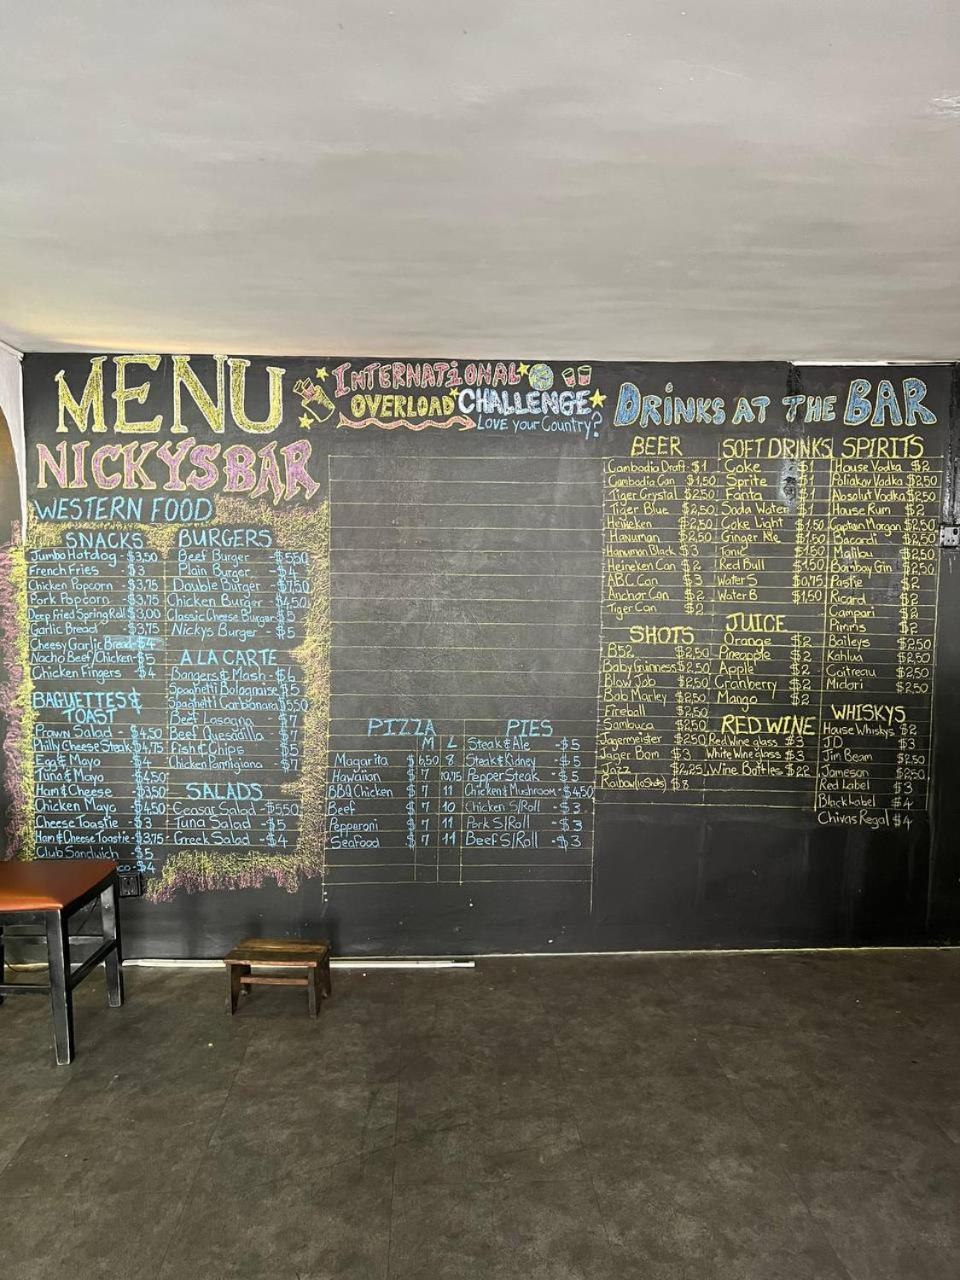 MENU
NICKYSBAR
WESTERN FOOD
SNACKS
Jumbo Hotdog - $3,50
French Fries - $3
Chicken Popcorn - $3,75
Pork Popcorn - $3,75
Deep Fried Spring Roll $3,00
Garlic Bread - $3,75
Cheesy Garlic Bread $4
Nacho Beef/Chicken - $5
Chicken Fingers - $4
BAGUETTES &
TOAST
Prawn Salad - $4,50
Philly Cheese Steak $4,75
Egg & Mayo - $4
Tuna & Mayo - $4,50
Ham & Cheese $3,50
Chicken Mayo - $4,50
Cheese Toastie - $3
Ham & Cheese Toastie - $3,75
Club Sandwich - $5
co - $4
BURGERS
Beef Burger - $550
Plain Burger - $4
Double Burger - $750
Chicken Burger - $4,50
Classic Cheese Burger $5
Nickys Burger - $5
A LA CARTE
Bangers & Mash - $6
Spaghetti Bolognaise $5
Spaghetti Carbonara $550
Beef Lasagna - $7
Beef Quesadilla - $7
Fish & Chips - $5
Chicken Parmigiana - $7
SALADS
Ceasar Salad - $550
Tuna Salad - $5
Greek Salad - $4
INTERNATIONAL
OVERLOAD CHALLENGE
LOVE your Country?
PIZZA
M L
Magarita $6,50 8
Hawaiian $7 10,75
BBQ Chicken $7 11
Beef $7 10
Pepperoni $7 11
Seafood $7 11
PIES
Steak & Ale - $5
Steak & Kidney - $5
Pepper Steak - $5
Chicken & Mushroom - $4,50
Chicken S/Roll - $3
Pork S/Roll - $3
Beef S/Roll - $3
DRINKS AT THE BAR
BEER
Cambodia Draft - $1
Cambodia Can $1,50
Tiger Crystal $2,50
Tiger Blue $2,50
Heineken $2,50
Hanuman $2,50
Hanuman Black $3
Heineken Can $2
ABC Can $3
Anchor Can $2
Tiger Can $2
SHOTS
B52 $2,50
Baby Guinness $2,50
Blow Job $2,50
Bob Marley $2,50
Fireball $2,50
Sambuca $2,50
Jagermeister $2,50
Jager Bom $3
Jazz $2,25
Raibow (10 Shots) $8
SOFT DRINKS
Coke $1
Sprite $1
Fanta $1
Soda Water $1
Coke Light $1,50
Ginger Ale $1,50
Tonic $1,50
Red Bull $1,50
Water S $0,75
Water B $1,50
JUICE
Orange $2
Pineapple $2
Apple $2
Cranberry $2
Mango $2
RED WINE
Red Wine glass $3
White Wine glass $3
Wine Bottles $22
SPIRITS
House Vodka $2
Poliakov Vodka $2,50
Absolut Vodka $2,50
House Rum $2
Captain Morgan $2,50
Bacardi $2,50
Malibu $2,50
Bombay Gin $2,50
Pastie $2
Ricard $2
Campari $2
Pimms $2
Baileys $2,50
Kahlua $2,50
Coitreau $2,50
Midori $2,50
WHISKYS
House Whiskys $2
JD $3
Jim Beam $2,50
Jameson $2,50
Red Label $3
Black Label $4
Chivas Regal $4